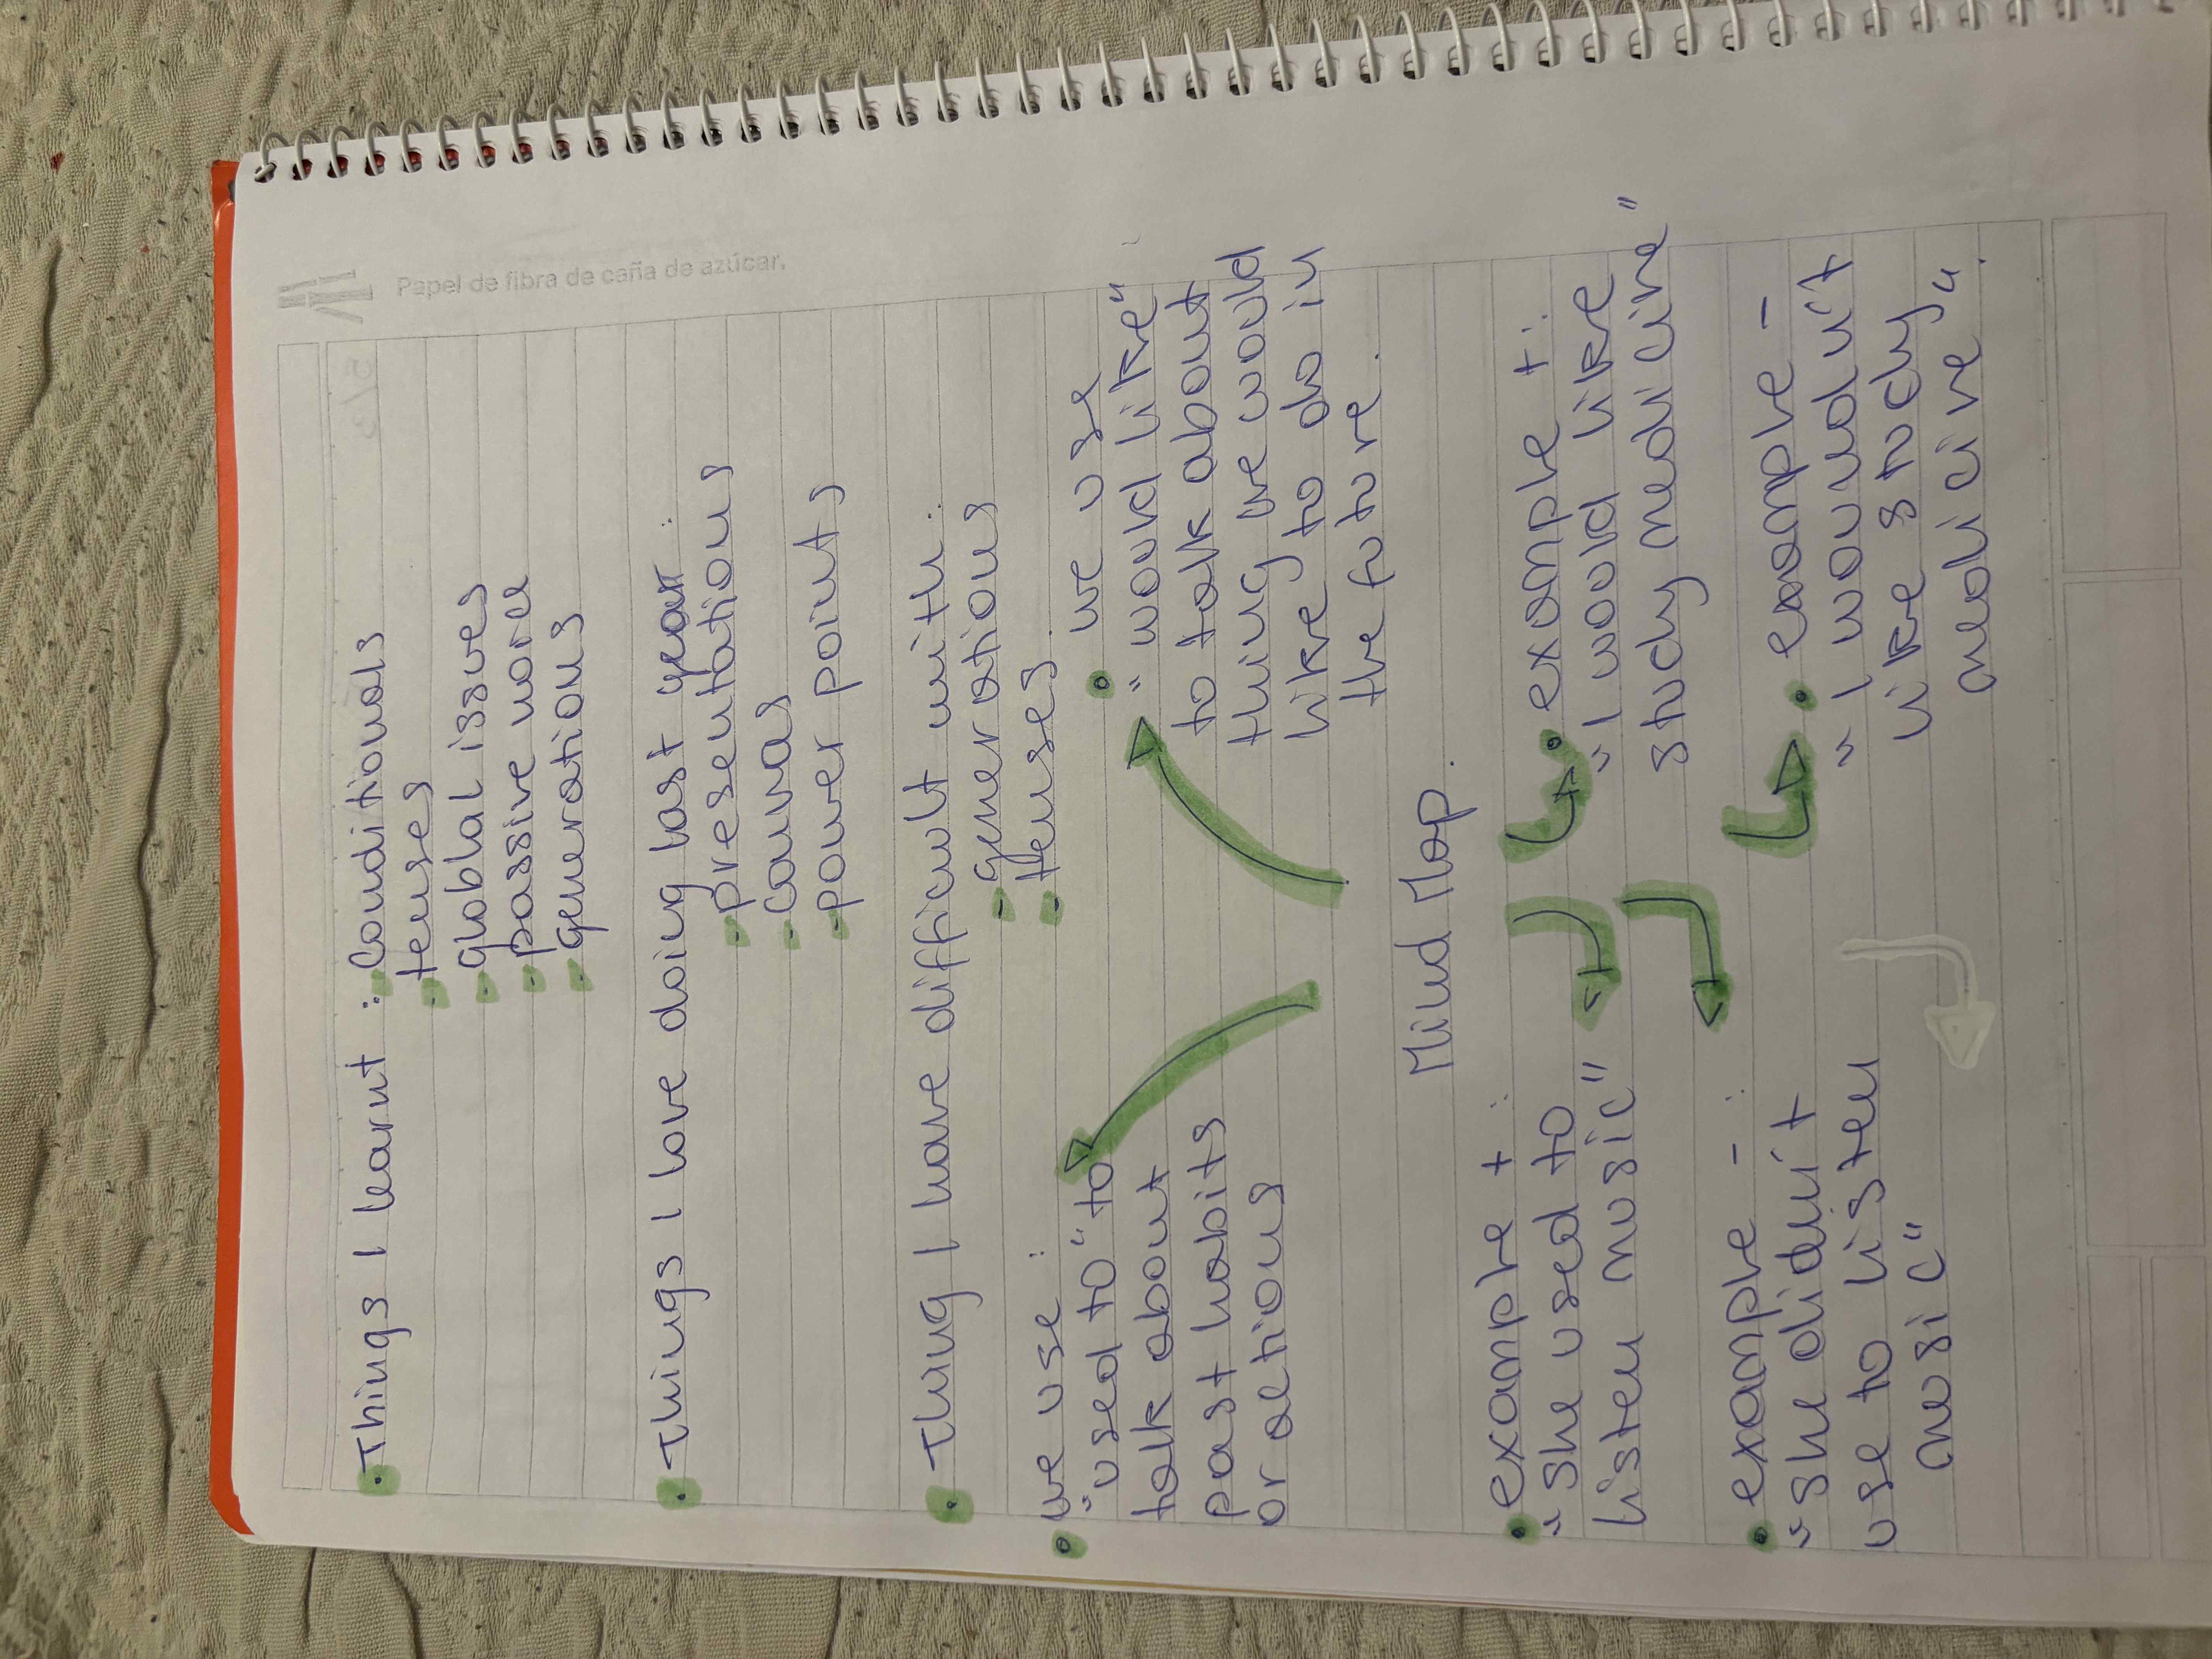 Papel de fibra de caña de azúcar.
• Things I learnt : - Conditionals
- tenses
- globlal issues
- passive voice
- generations
• Things I love doing last year :
- presentations
- canvas
- power points
• Thing I have difficult with :
- generations
- tenses.
• we use :
"used to" to
talk about
past habits
or actions
• we use
"would like"
to talk about
thing we would
like to do in
the future.
Mind Map.
• example + :
"She used to
listen music"
• example + :
"I would like
study medicine"
• example - :
"She didn't
use to listen
music"
• example -
"I wouldn't
like study
medicine".